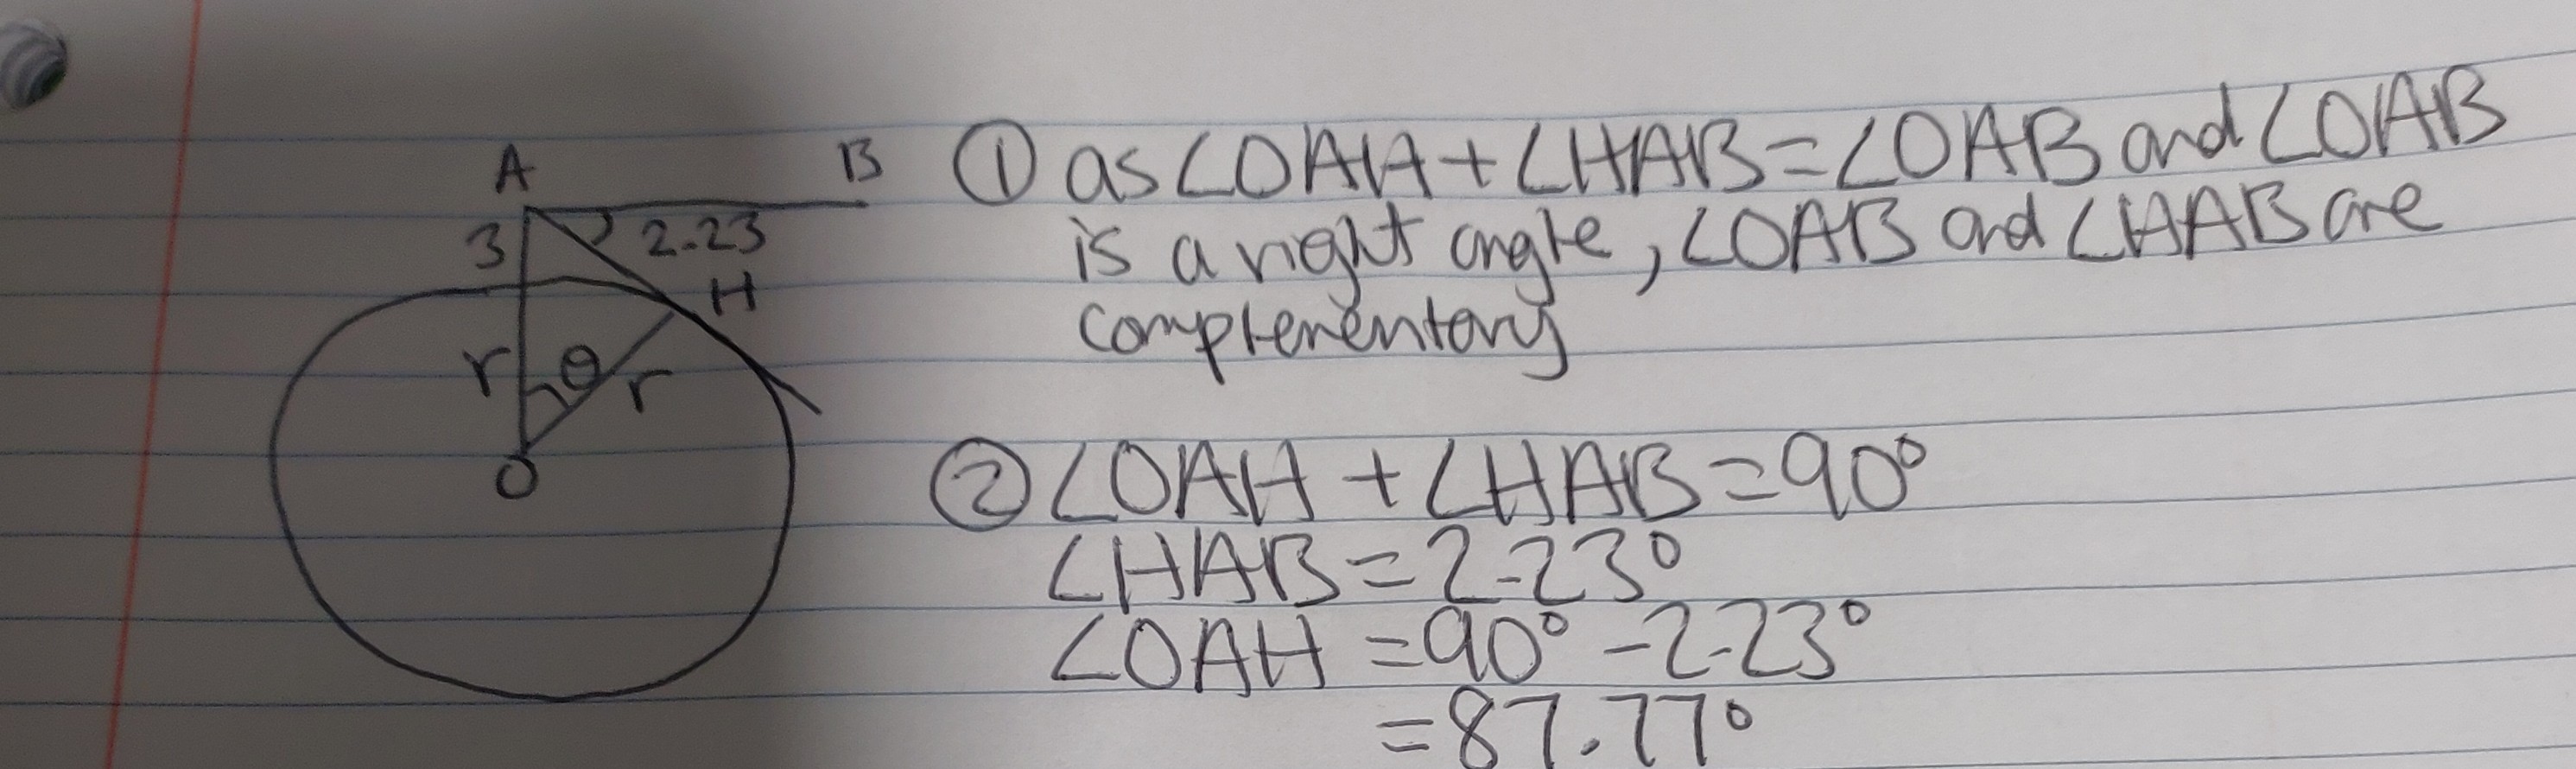 A
B
3
2.23
H
r
θ
r
O
① as ∠OAH + ∠HAB = ∠OAB and ∠OAB
is a right angle, ∠OAB and ∠HAB are
complementary
② ∠OAH + ∠HAB = 90°
∠HAB = 2.23°
∠OAH = 90° - 2.23°
= 87.77°